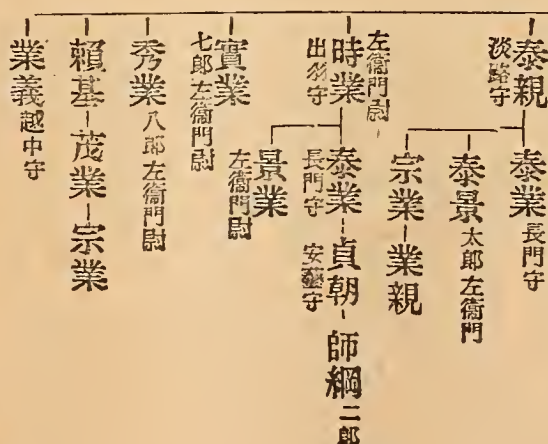 泰親 淡路守
泰業 長門守
泰景 太郎左衞門
宗業 業親
時業 左衞門尉 出羽守
泰業 長門守 貞朝 安藝守 師綱 二郎
景業 左衞門尉
實業 七郎左衞門尉
秀業 八郎左衞門尉
賴基 茂業 宗業
業義 越中守